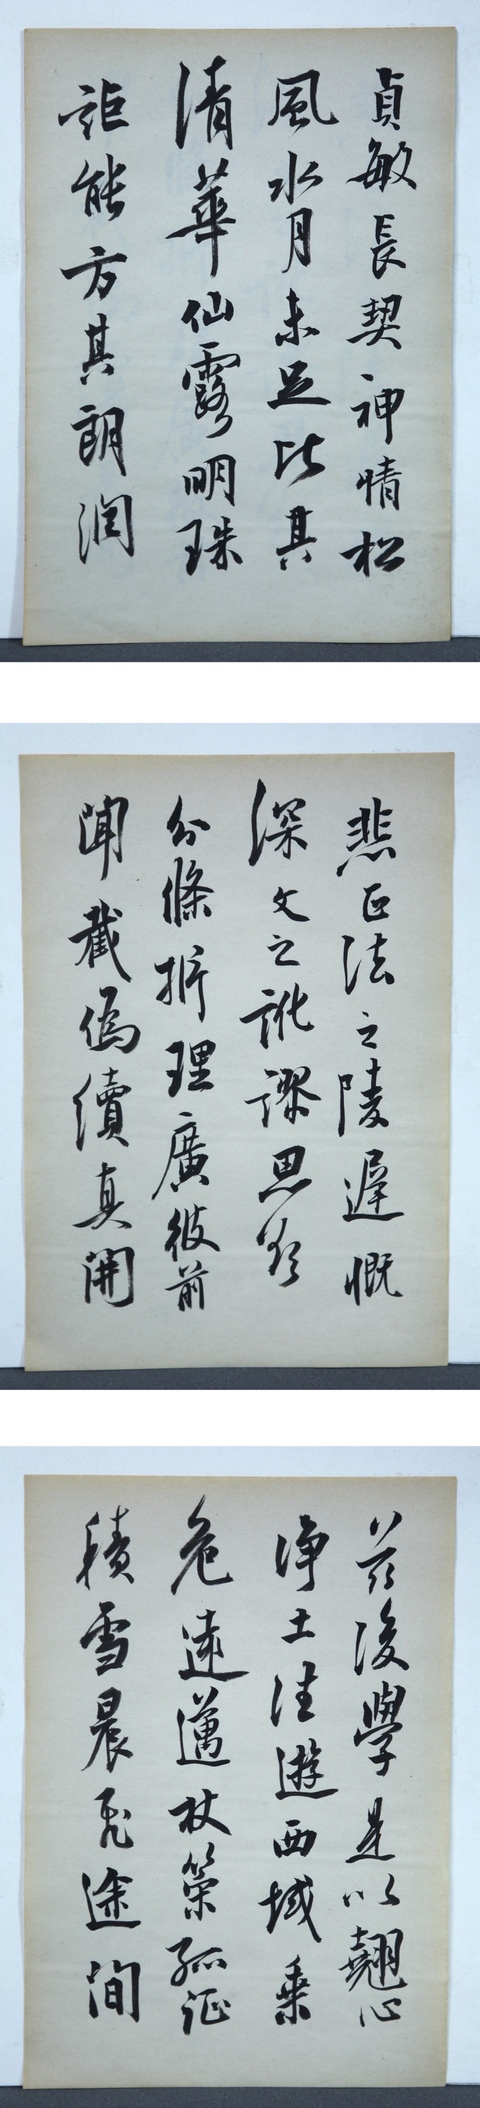 貞敏長契神情松
風水月未足比其
清華仙露明珠
詎能方其朗潤
悲正法之陵遲慨
深文之訛謬思欲
分條析理廣彼前
聞截偽續真開
茲後學是以翹心
淨土法遊西域乘
危遠邁杖策孤征
積雪晨飛途間